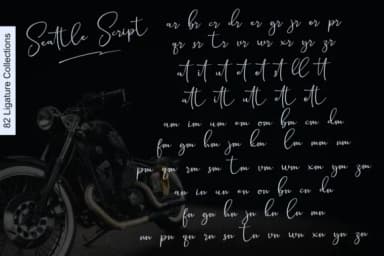 82 Ligature Collections
Seattle Script
ar br cr dr er gr jr or pr
qr sr tr ur vr wr xr yr zr
at it ut et ot st ll tt
att itt utt ett ott
am im um em om bm cm dm
fm gm hm jm km lm mm nm
pm qm rm sm tm vm wm xm ym zm
an in un en on bn cn dn
fn gn hn jn kn ln mn
nn pn qn rn sn tn vn wn xn yn zn